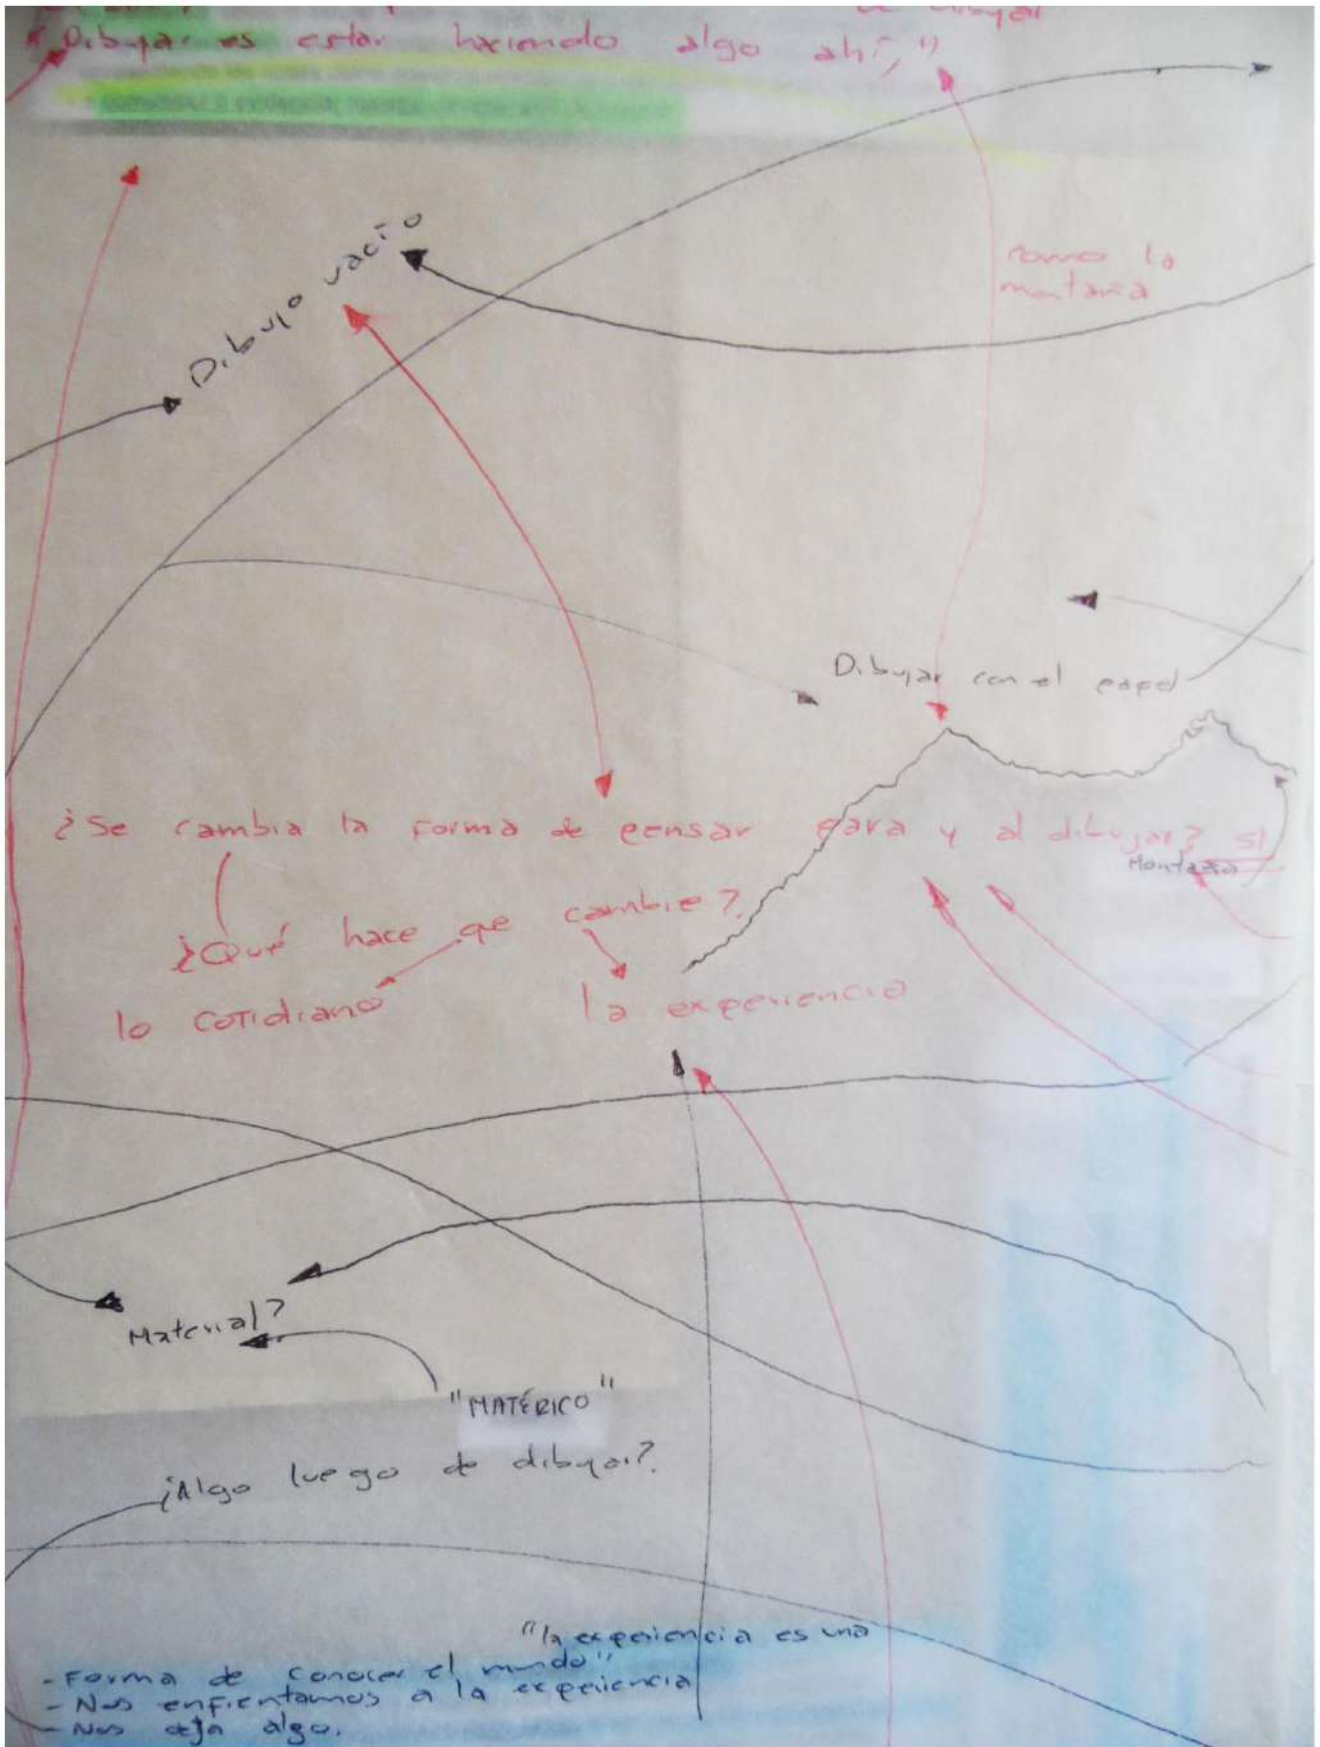 de dibujar
"Dibujar es estar haciendo algo ahí,"
Dibujo vacío
como la
montaña
Dibujar con el papel
¿Se cambia la forma de pensar para y al dibujar? si
Montaña
¿Qué hace que cambie?
lo cotidiano
la experiencia
Material?
"MATÉRICO"
¿Algo luego de dibujar?
"la experiencia es una
- Forma de conocer el mundo"
- Nos enfrentamos a la experiencia
- Nos deja algo.